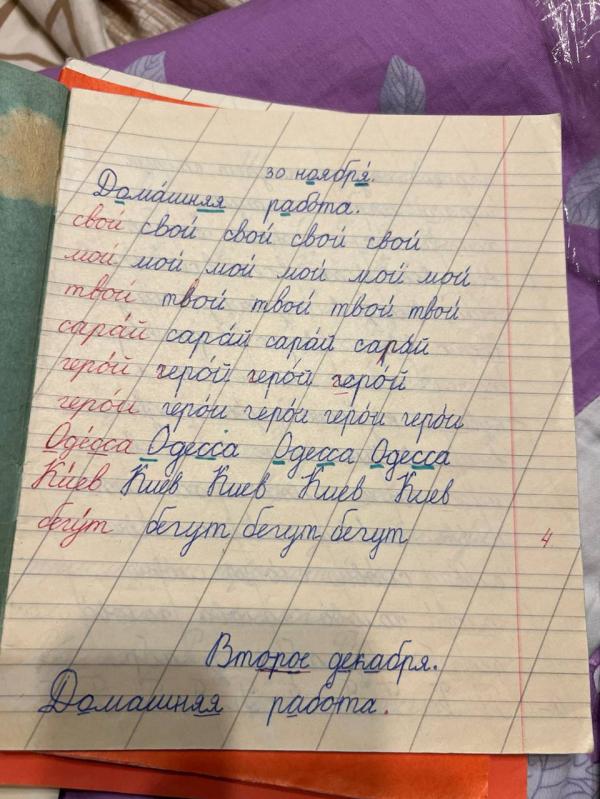 30 ноября́.
Дома́шняя рабо́та.
свой свой свой свой свой
мой мой мой мой мой мой
твой твой твой твой твой
сара́й сара́й сара́й сара́й
геро́й геро́й геро́й геро́й
геро́и геро́и геро́и геро́и геро́и
Оде́сса Одесса Одесса Одесса
Ки́ев Киев Киев Киев Киев
бегу́т бегут бегут бегут
4
Второе декабря.
Домашняя работа.